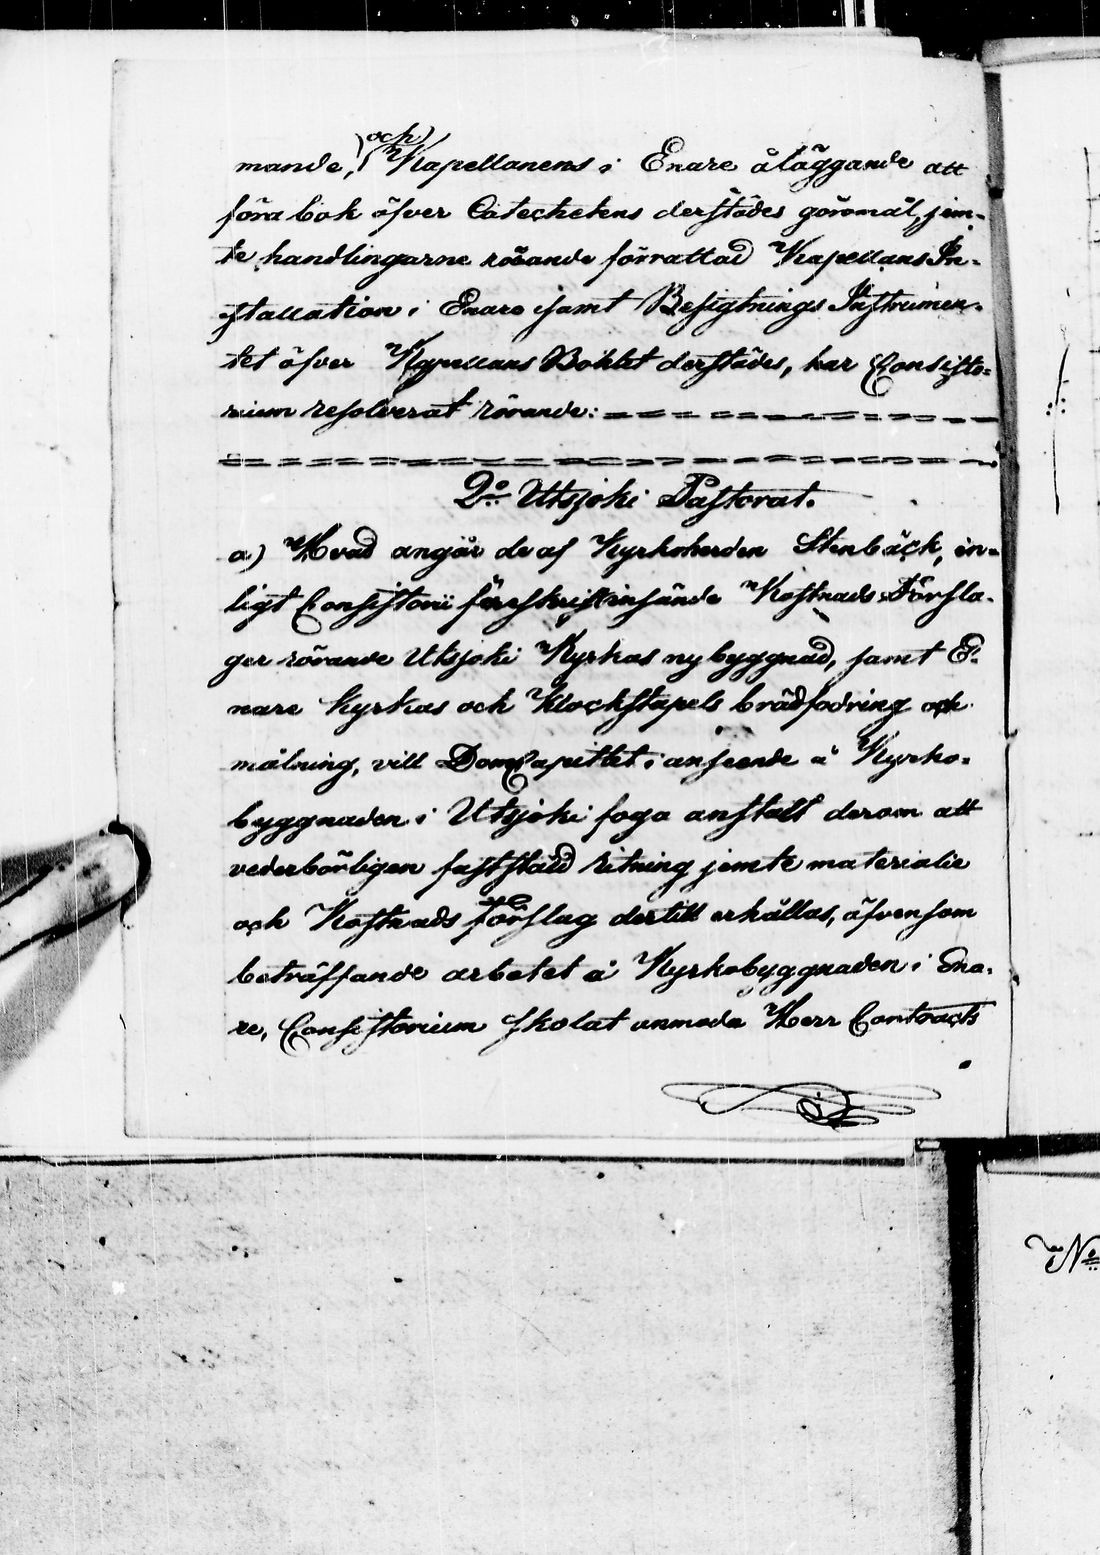 mande, och Kapellanens i Enare åläggande att
föra bok öfver Catechetens derstädes göromål, jem-
te handlingarne rörande förrattad Kapellans In-
stallation i Enare samt Besigtnings Instrumen-
tet öfver Kapellans Bohlet derstädes, har Consisto-
rium resolverat rörande:
2:o Utsjoki Pastorat.
a) Hvad angår de af Kyrkoherden Stenbäck, en-
ligt Consistorii föreskrift insände Kostnads Försla-
ger rörande Utsjoki Kyrkas nybyggnad, samt E-
nare Kyrkas och Klockstapels brädfodring och
målning, vill DomCapitlet i anseende å Kyrko-
byggnaden i Utsjoki foga anstalt derom att
vederbörligen fastställd ritning jemte materialie
och Kostnads förslag dertill erhållas, äfvensom
beträffande arbetet å Kyrkobyggnaden i Ena-
re, Consistorium skolat anmoda Herr Contracts
No